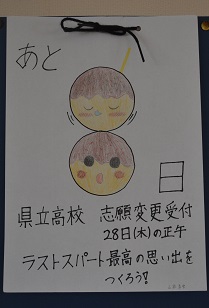 あと
日
県立高校 志願変更受付
28日(木)の正午
ラストスパート最高の思い出を
つくろう!